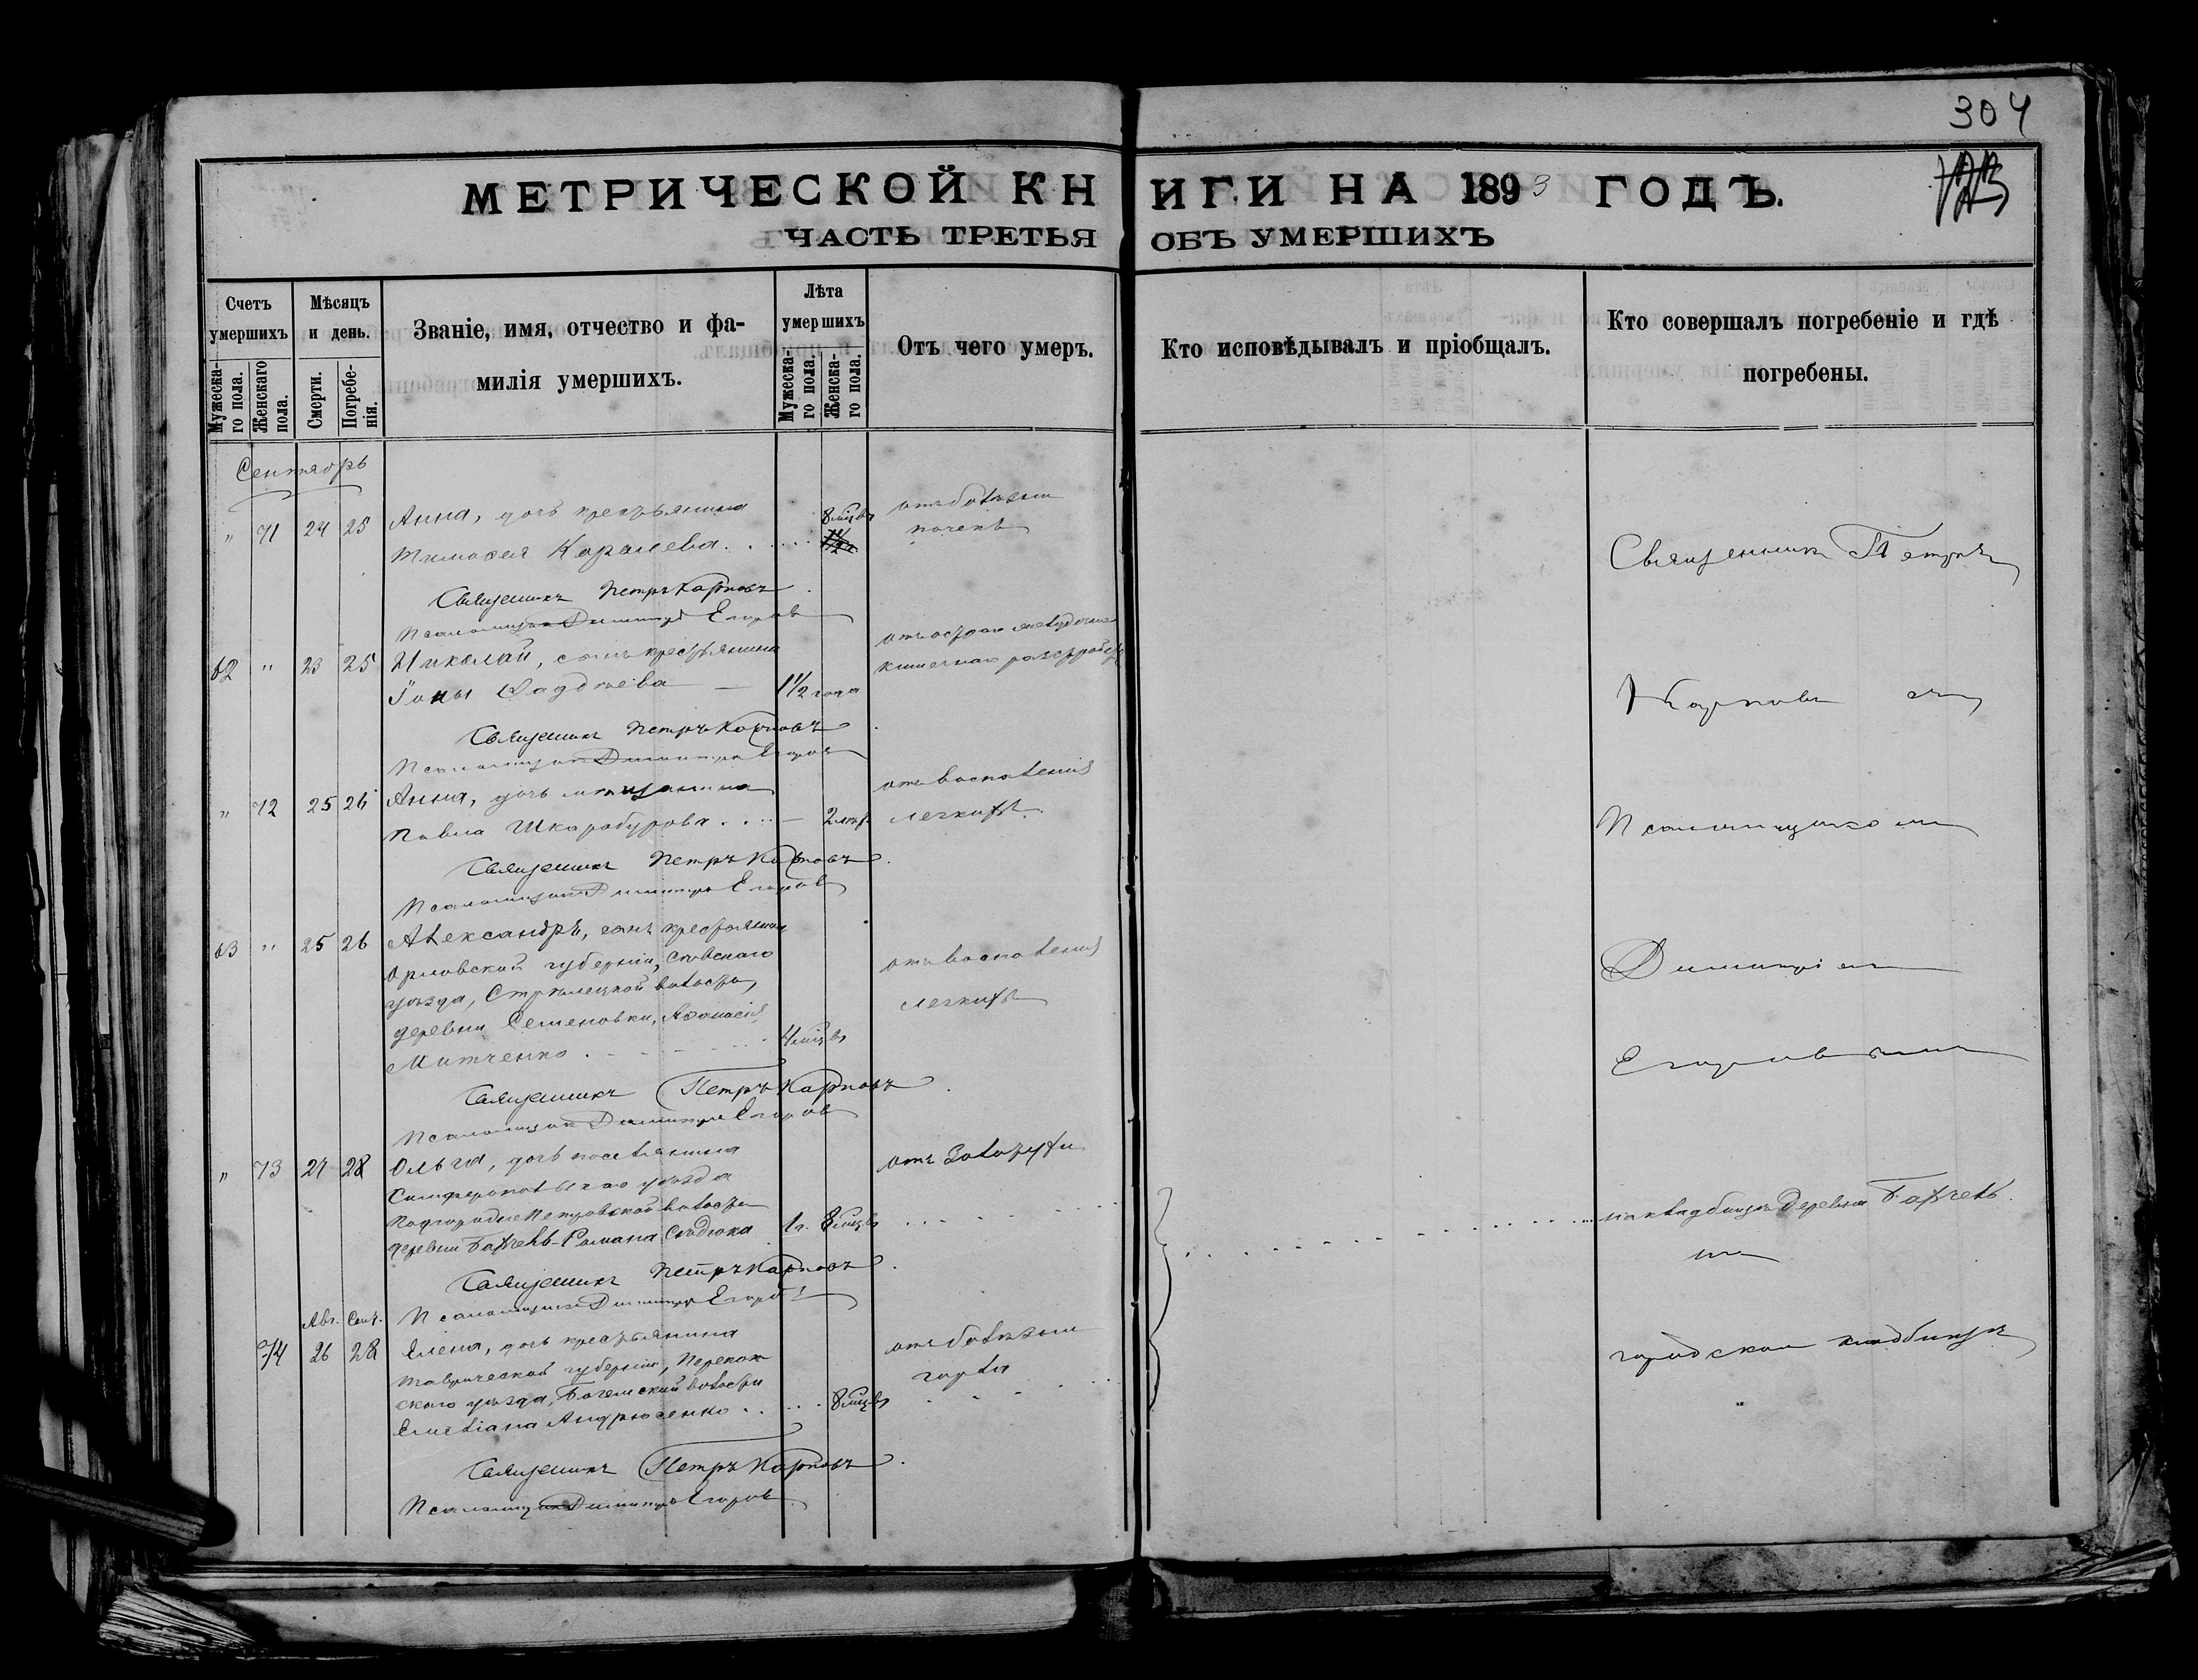 304
МЕТРИЧЕСКОЙ КНИГИ НА 1893 ГОДЪ.
ЧАСТЬ ТРЕТЬЯ ОБЪ УМЕРШИХЪ
Счетъ умершихъ
Мужескаго пола.
Женскаго пола.
Мѣсяцъ и день.
Смерти.
Погребенія.
Званіе, имя, отчество и фамилія умершихъ.
Лѣта умершихъ
Мужескаго пола.
Женскаго пола.
Отъ чего умеръ.
Кто исповѣдывалъ и пріобщалъ.
Кто совершалъ погребеніе и гдѣ погребены.
Сентябрь
" 71 24 25 Анна, дочь крестьянина 8 мѣс. отъ болѣзни
Тимофея Королева почекъ
Священникъ Петръ Карповъ
Псаломщикъ Димитрій Егоровъ
62 " 23 25 Николай, сынъ крестьянина
Іоны Фаддѣева 1 1/2 года
Священникъ Петръ Карповъ
Псаломщикъ Димитрій Егоровъ
" 72 25 26 Анна, дочь мѣщанина отъ воспаленія
Павла Шкоробурова 2 лѣт. легкихъ
Священникъ Петръ Карповъ
Псаломщикъ Димитрій Егоровъ
63 " 25 26 Александръ, сынъ крестьянина
Орловской губерніи, Сѣвскаго отъ воспаленія
уѣзда, Стрѣлецкой волости, легкихъ
деревни Семеновки, Аѳанасія
Митченко 4 мѣс.
Священникъ Петръ Карповъ
Псаломщикъ Димитрій Егоровъ
" 73 27 28 Ольга, дочь поселянина
Симферопольскаго уѣзда
Подгородне Петровской волости
деревни Бахчель Романа Сѣдюка 1 г. 8 мѣс.
Священникъ Петръ Карповъ
Псаломщикъ Димитрій Егоровъ
Авг. Сент.
74 26 28 Елена, дочь крестьянина отъ болѣзни
Таврической губерніи, Перекоп горла
скаго уѣзда, волости
Емеліана Андрюсенко 8 мѣс.
Священникъ Петръ Карповъ
Псаломщикъ Димитрій Егоровъ
Священникъ Петръ
Карповъ съ
Псаломщикомъ
Димитріемъ
Егоровымъ
на кладбищѣ деревни Бахчель
городском кладбищѣ